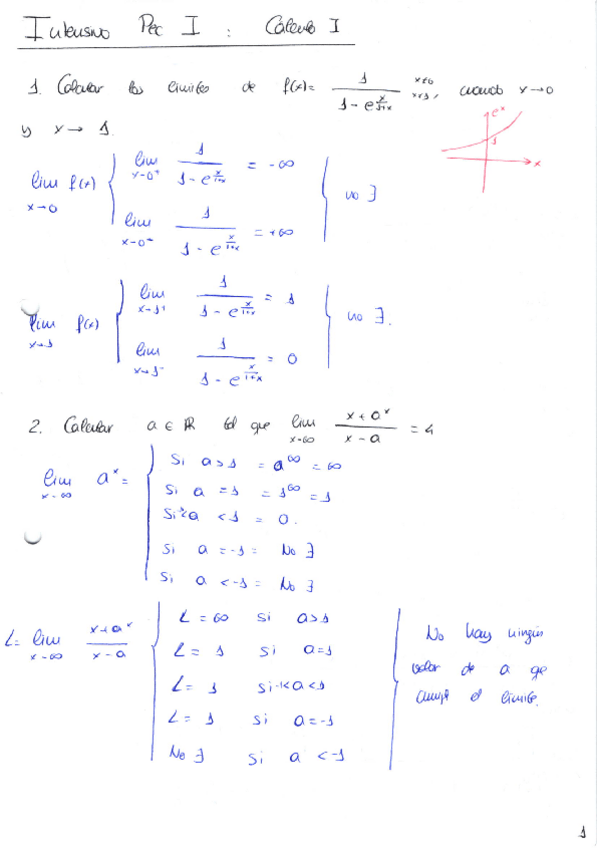 Intensivo Pec I : Cálculo I
1. Calcular los límites de f(x)= 1/(1-e^(x/(1+x))) x≠0 x≠1, cuando x→0
y x→1.
e^x
1
x
lim x→0 f(x) { lim x→0⁺ 1/(1-e^(x/(1+x))) = -∞
lim x→0⁻ 1/(1-e^(x/(1+x))) = +∞ } no ∃
lim x→1 f(x) { lim x→1⁺ 1/(1-e^(x/(1+x))) = 1
lim x→1⁻ 1/(1-e^(x/(1+x))) = 0 } no ∃.
2. Calcular a ∈ ℝ tal que lim x→∞ (x+a^x)/(x-a) = 4
lim x→∞ a^x = { Si a>1 = a^∞ = ∞
Si a = 1 = 1^∞ = 1
Si a < 1 = 0.
Si a = -1 = No ∃
Si a < -1 = No ∃
L = lim x→∞ (x+a^x)/(x-a) { L = ∞ si a>1
L = 1 si a=1
L = 1 si -1<a<1
L = 1 si a=-1
No ∃ si a < -1
No hay ningún
valor de a qe
cumpla el límite.
1